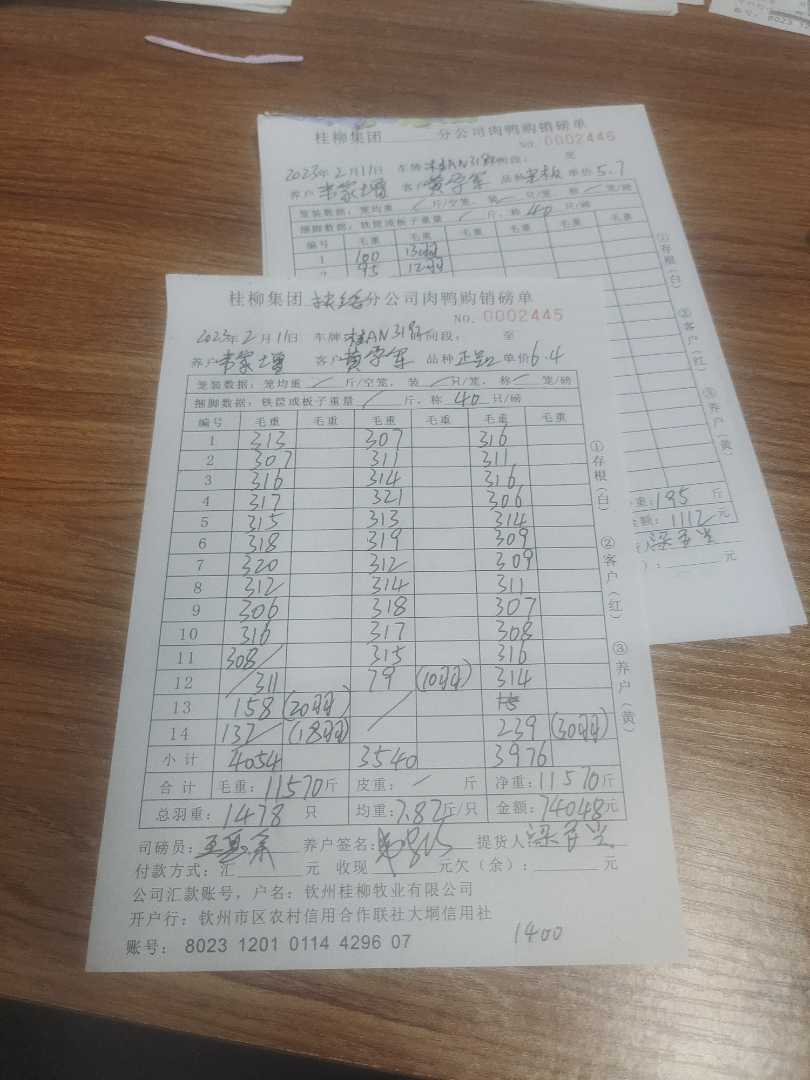 账号: 8023
桂柳集团 分公司肉鸭购销磅单
NO. 0002446
2023年2月11日 车牌桂AN319 时间段: 至
养户 韦家增 客户 黄学军 品种 单价5.7
笼装数据: 笼均重 / 斤/空笼, 装 / 只/笼, 称 / 笼/磅
捆脚数据: 铁筐或板子重量 / 斤, 称 40 只/磅
编号 毛重 毛重 毛重 毛重 毛重 毛重
1 100 13羽
2 95 12羽
①存根(白) ②客户(红) ③养户(黄)
重: 195 斤
额: 1112 元
元
桂柳集团 扶绥 分公司肉鸭购销磅单
NO. 0002445
2023年2月11日 车牌桂AN319 时间段: 至
养户 韦家增 客户 黄学军 品种 正品 单价6.4
笼装数据: 笼均重 / 斤/空笼, 装 / 只/笼, 称 / 笼/磅
捆脚数据: 铁筐或板子重量 / 斤, 称 40 只/磅
编号 毛重 毛重 毛重 毛重 毛重 毛重
1 313 307 316
2 307 311 311
3 316 314 316
4 317 321 306
5 315 313 314
6 318 319 309
7 320 312 309
8 312 314 311
9 306 318 307
10 316 317 308
11 308 315 316
12 311 79 (10羽) 314
13 158 (20羽)
14 132 (18羽) 239 (30羽)
小计 4054 3540 3976
合计 毛重: 11570斤 皮重: / 斤 净重: 11570斤
总羽重: 1478 只 均重: 7.82斤/只 金额: 74048元
①存根(白) ②客户(红) ③养户(黄)
司磅员: 养户签名: 提货人
付款方式: 汇 元 收现 元欠(余): 元
公司汇款账号, 户名: 钦州桂柳牧业有限公司
开户行: 钦州市区农村信用合作联社大垌信用社
账号: 8023 1201 0114 4296 07
1400